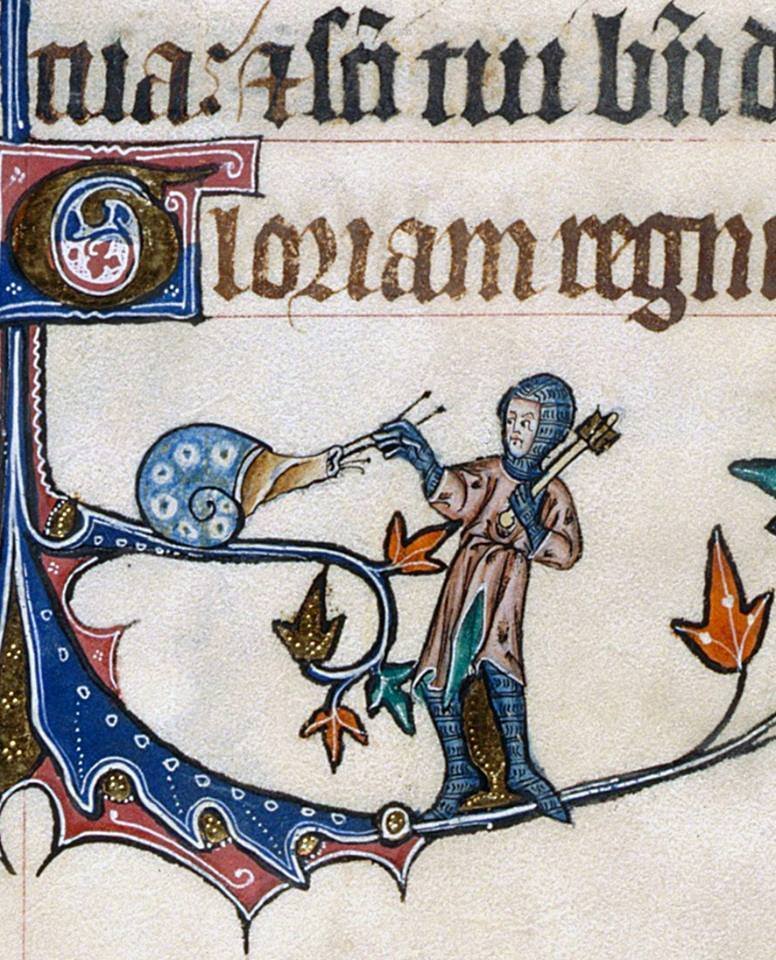 tua: ⁊ ſcī tui bn̄d
Gloriam regni